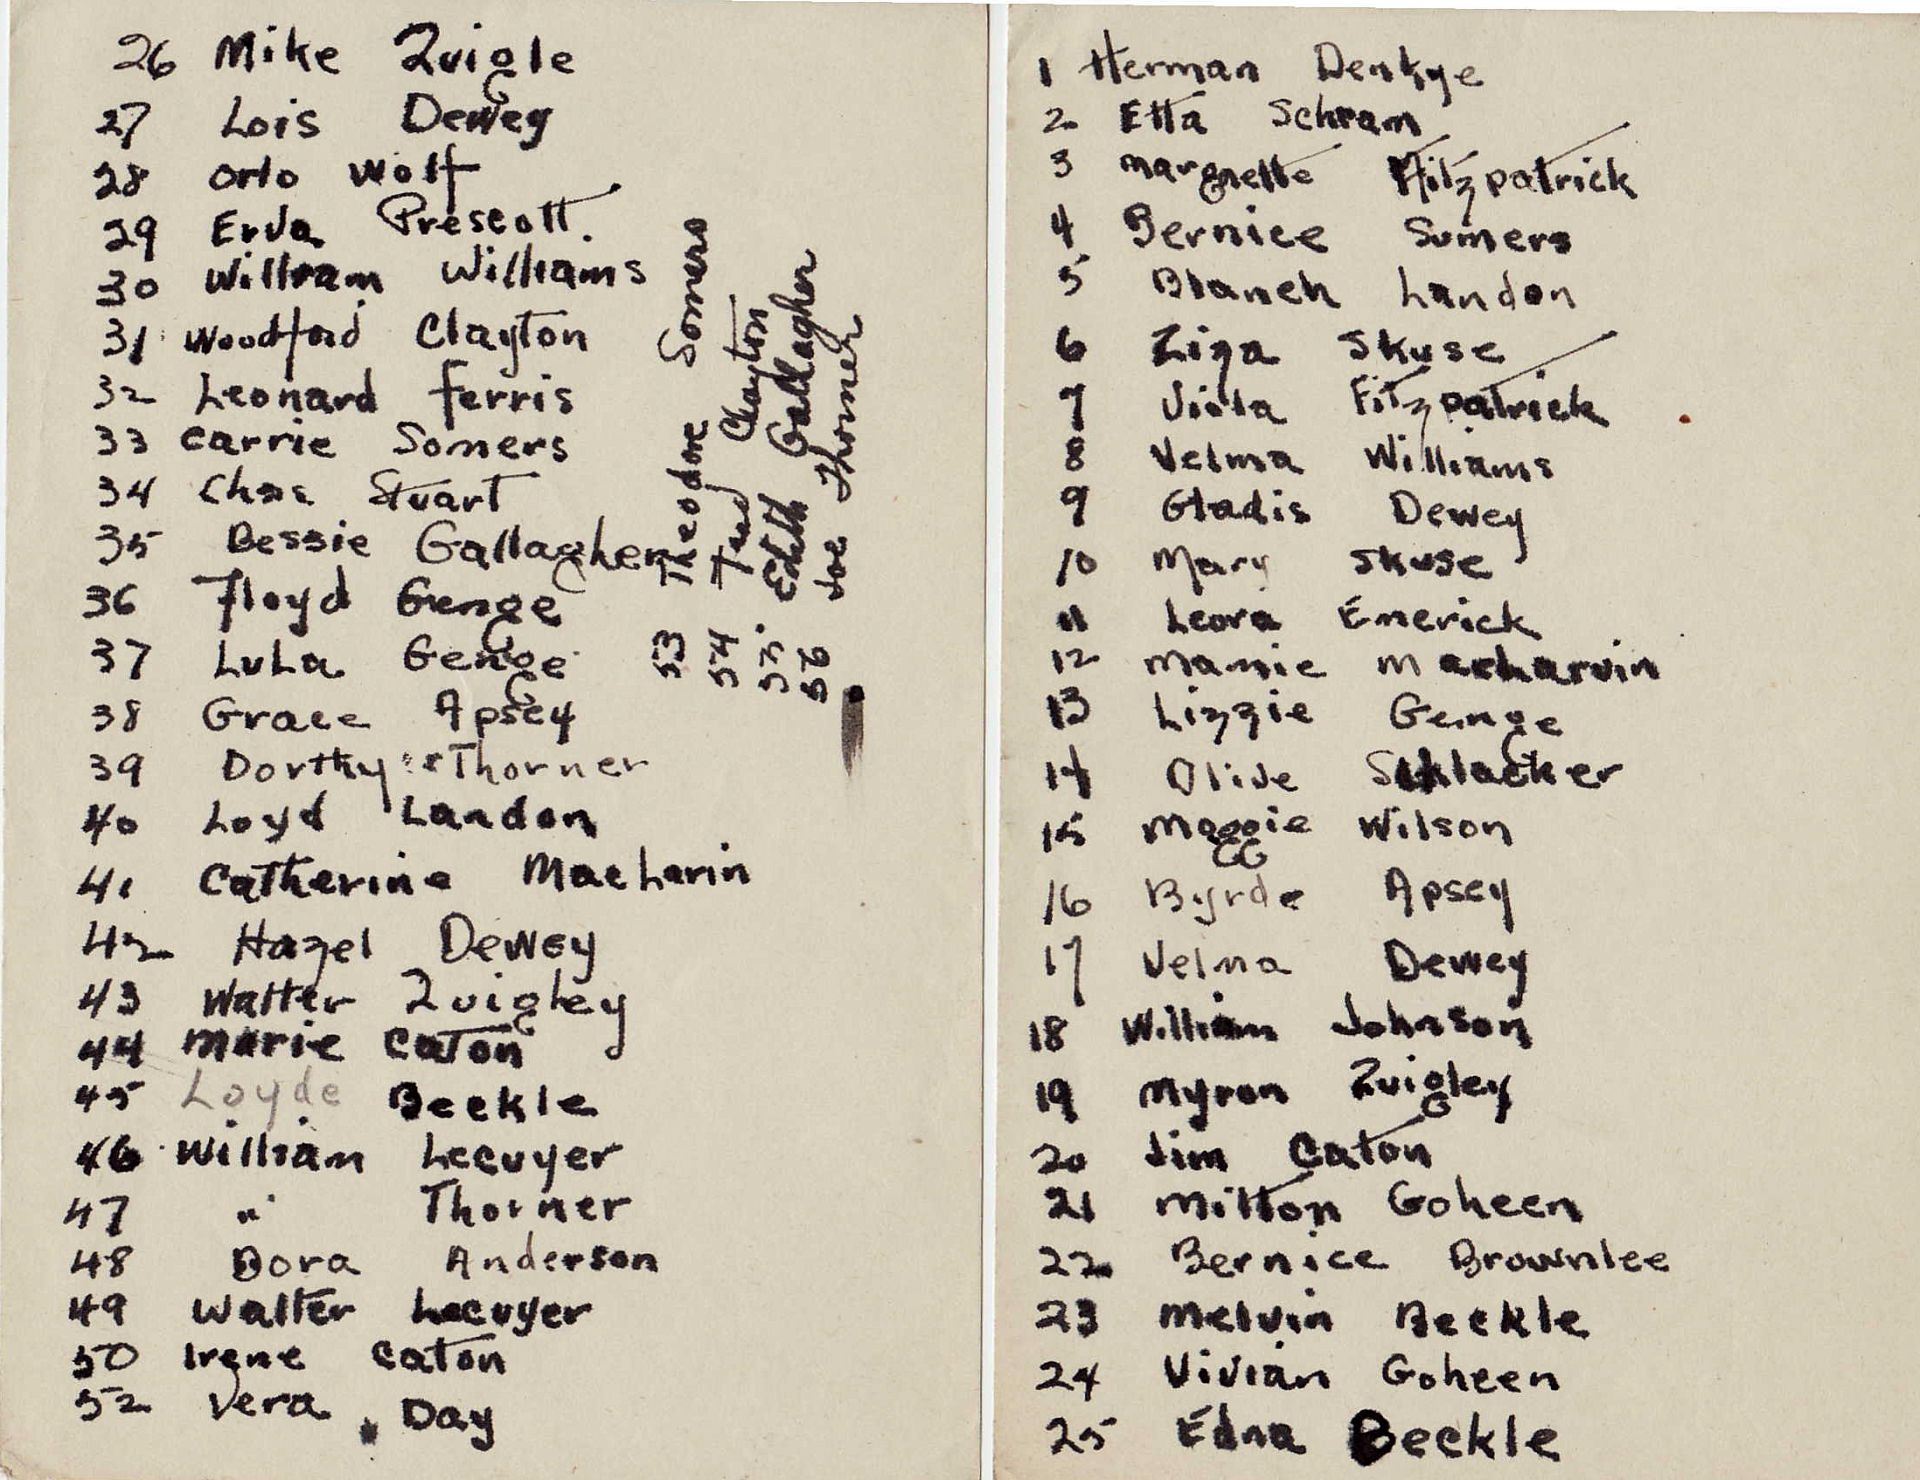 26 Mike Quigle
27 Lois Dewey
28 Orlo Wolf
29 Erva Prescott.
30 William Williams
31 Woodford Clayton
32 Leonard Ferris
33 Carrie Somers
34 Chas Stuart
35 Bessie Gallagher
36 Floyd Genge
37 Lula Genge
38 Grace Apsey
39 Dorthy Thorner
40 Loyd Landon
41 Catherine MacLarin
42 Hazel Dewey
43 Walter Quigley
44 Marie Caton
45 Loyde Beckle
46 William Lecuyer
47 " Thorner
48 Dora Anderson
49 Walter Lecuyer
50 Irene Caton
52 Vera Day
53 Theodore Somers
54 Fred Clayton
55. Edith Gallagher
56 Joe Thorner
1 Herman Denkye
2 Etta Schram
3 Margrette Fitzpatrick
4 Bernice Sumers
5 Blanch Landon
6 Ziza Skuse
7 Viola Fitzpatrick
8 Velma Williams
9 Gladis Dewey
10 Mary Skuse
11 Leora Emerick
12 Mamie
13 Lizzie Genge
14 Olive Schlacker
15 Maggie Wilson
16 Byrde Apsey
17 Velma Dewey
18 William Johnson
19 Myron Quigley
20 Jim Caton
21 Milton Goheen
22 Bernice Brownlee
23 Melvin Beckle
24 Vivian Goheen
25 Edna Beckle